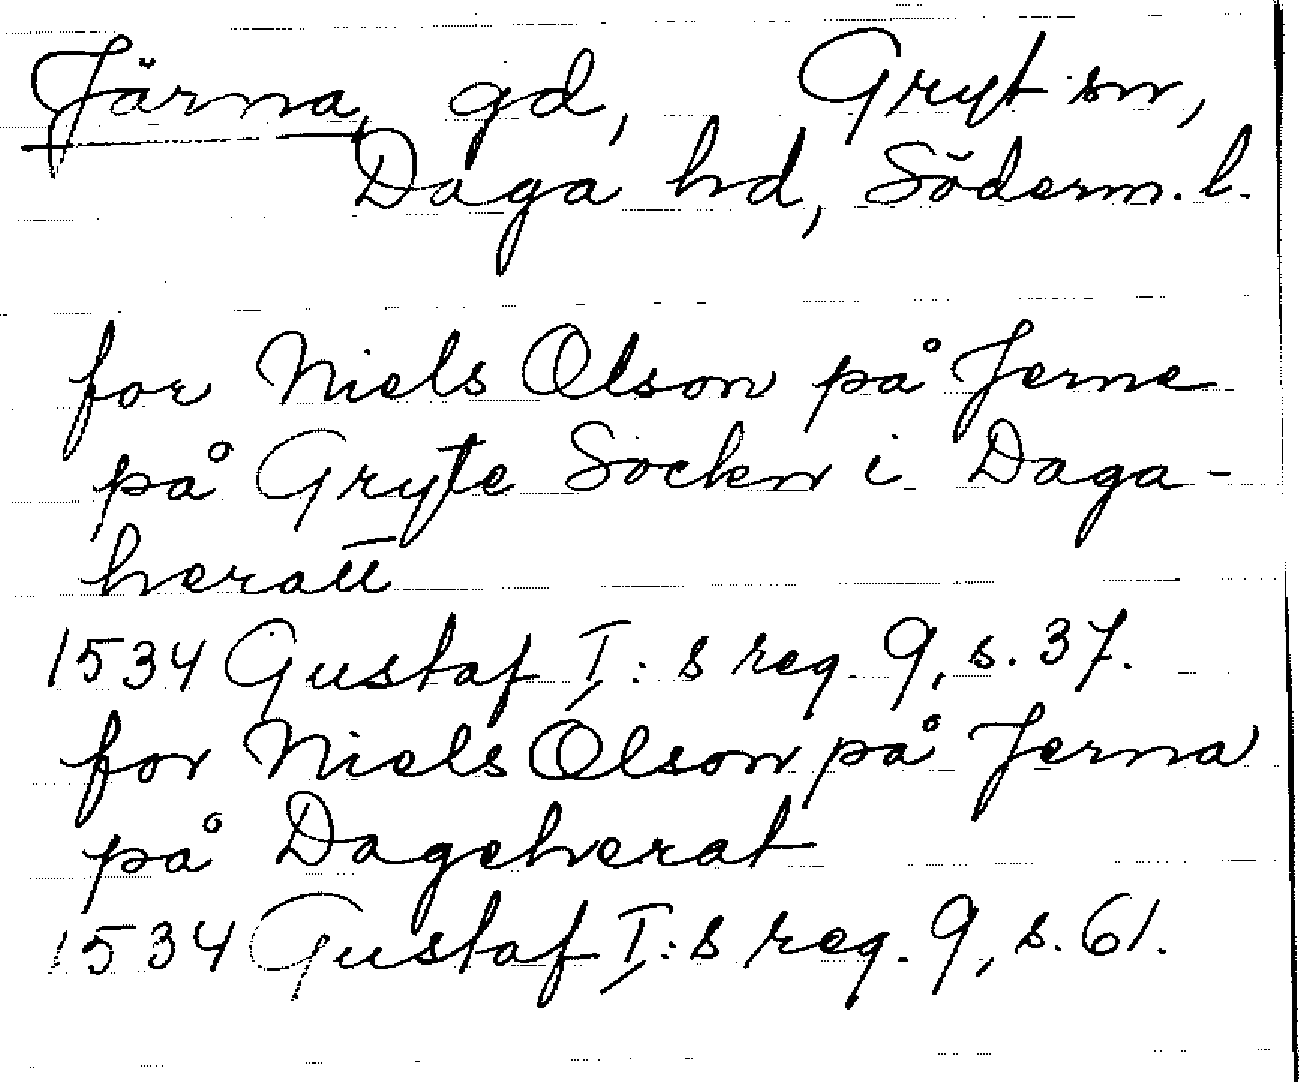 Järna, gd, Gryt sn,
Daga hd, Söderm. l.
for Niels Olson på Jerne
på Gryte Sockn i Daga-
heratt
1534 Gustaf I:s reg. 9, s. 37.
for Niels Olson på Jerna
på Dageherat
1534 Gustaf I:s reg. 9, s. 61.